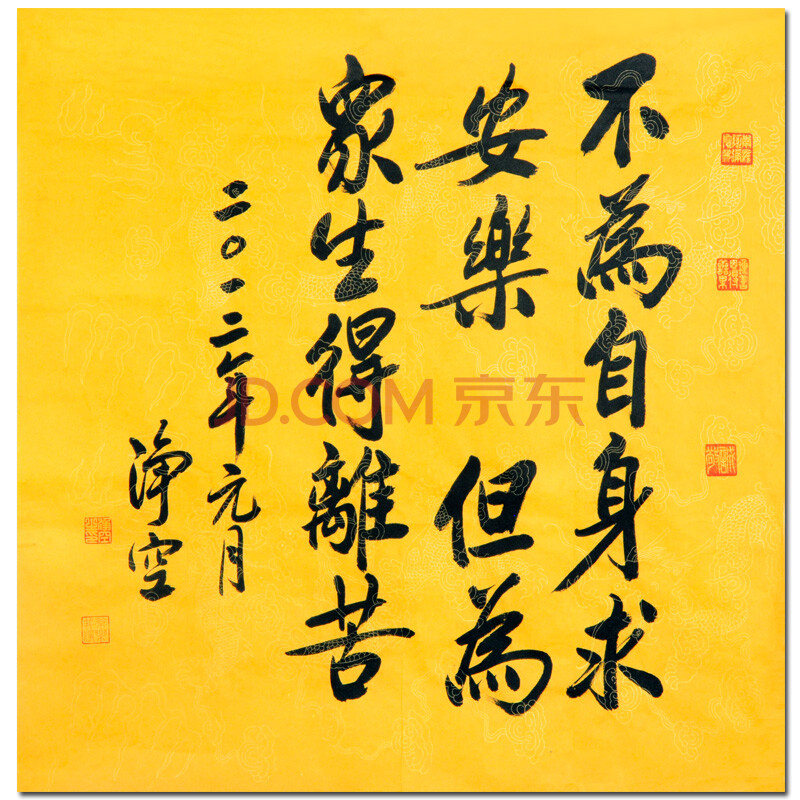 不為自身求
安樂 但為
眾生得離苦
二〇一二年元月
淨空
JD.COM 京东